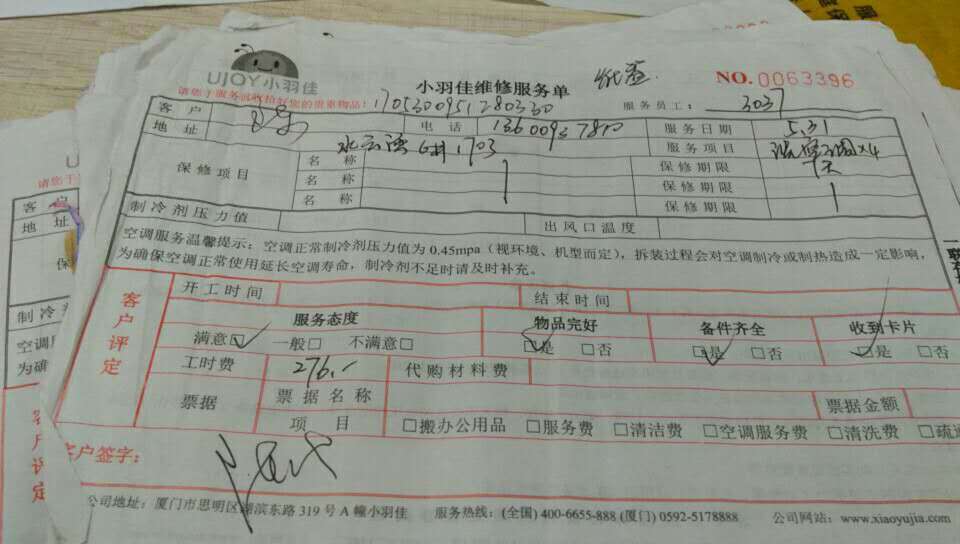 UJOY小羽佳
小羽佳维修服务单
NO.0063396
请您于服务前收拾好您的贵重物品! 1705300951280330
服务员工: 3037
客户
电话
服务日期 5.31
地址 6#1703
服务项目
保修项目
名称
保修期限
名称
保修期限
名称
保修期限
制冷剂压力值
出风口温度
空调服务温馨提示:空调正常制冷剂压力值为0.45mpa(视环境、机型而定),拆装过程会对空调制冷或制热造成一定影响,
为确保空调正常使用延长空调寿命,制冷剂不足时请及时补充。
客户评定
开工时间
结束时间
服务态度
物品完好
备件齐全
收到卡片
满意☑ 一般□ 不满意□
☑是 □否
☑是 □否
☑是 □否
工时费 276.-
代购材料费
票据
票据名称
票据金额
项目
□搬办公用品 □服务费 □清洁费 □空调服务费 □清洗费 □疏通
客户签字:
公司地址:厦门市思明区湖滨东路319号A幢小羽佳
服务热线:(全国)400-6655-888(厦门)0592-5178888
公司网站:www.xiaoyujia.com